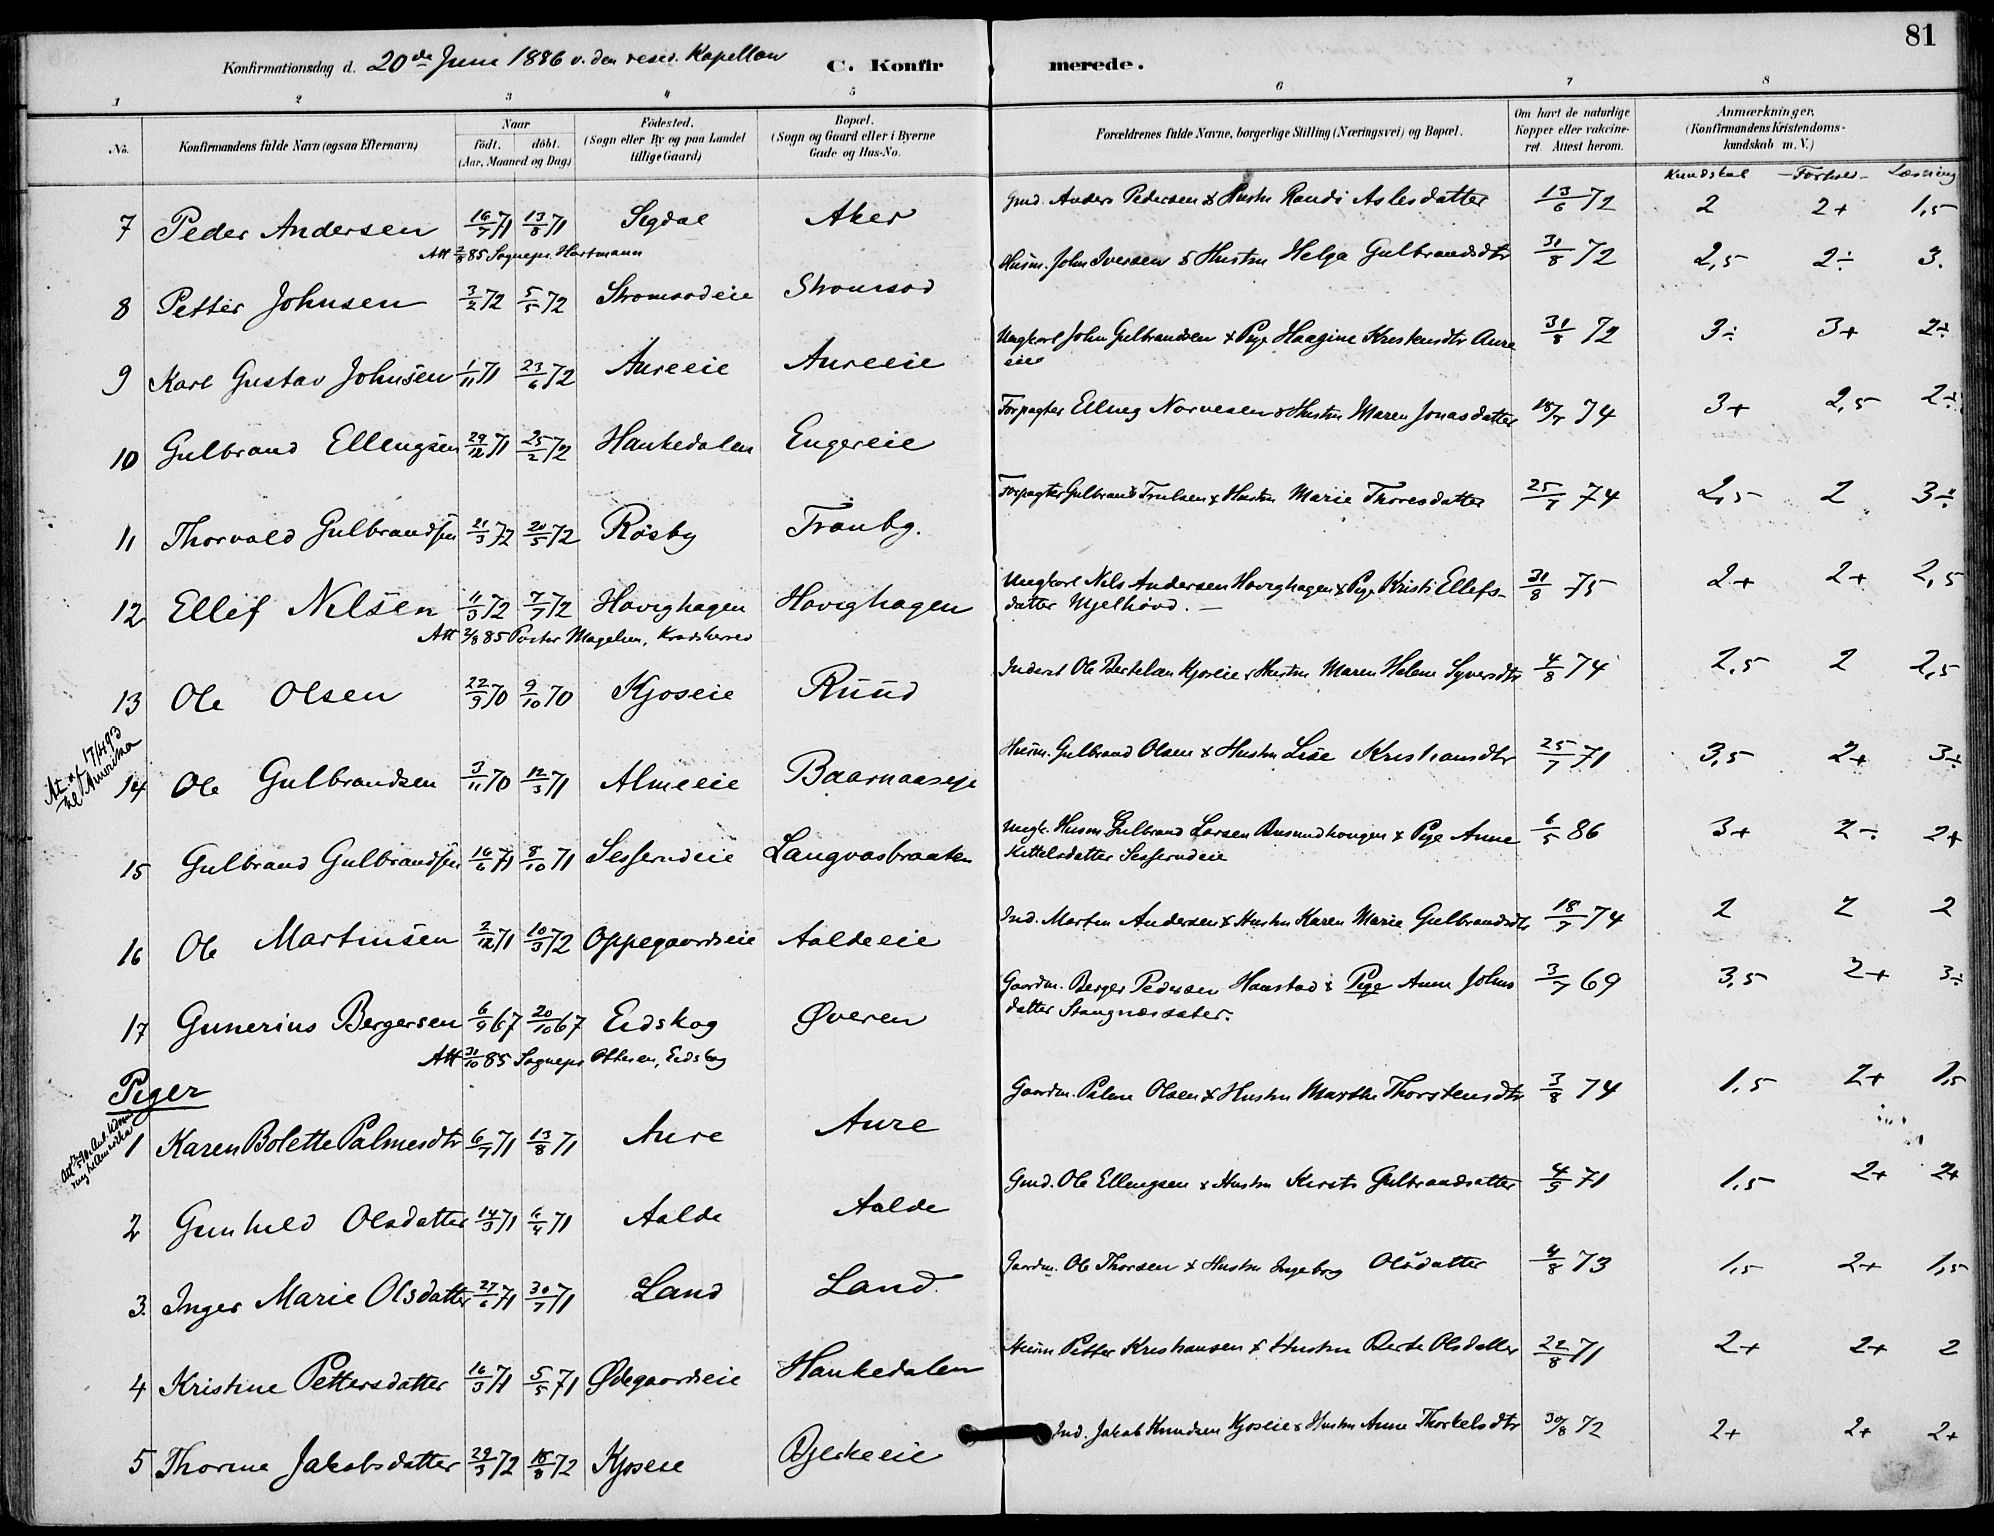 81
Konfirmationsdag d. 20de Juni 1886 v. den resid. Kapellan C. Konfirmerede.
1 2 3 4 5 6 7 8
No. Konfirmandens fulde Navn (ogsaa Efternavn) Naar født. døbt. (Aar, Maaned og Dag) Fødested. (Sogn eller By og paa Landet tillige Gaard) Bopæl. (Sogn og Gaard eller i Byerne Gade og Hus-No. Forældrenes fulde Navne, borgerlige Stilling (Næringsvei) og Bopæl. Om havt de naturlige Kopper eller vakcineret. Attest herom. Anmærkninger. (Konfirmandens Kristendomskundskab m. V.)
Kundskab Forhold Læsning
7 Peder Andersen 16/7 71 13/8 71 Sigdal Aker Gmd. Anders Pedersen & Hustru Randi Aslesdatter 13/6 72 2 2+ 1,5
Att 2/8 85 Sognepr. Hartmann
8 Petter Johnsen 3/2 72 5/5 72 Stromsodeie Stromsod Husm. John Iversen & Hustru Helga Gulbrandsdtr 31/8 72 2,5 2÷ 3.
9 Karl Gustav Johnsen 1/11 71 23/6 72 Aureeie Aureeie Ungkarl John Gulbrandsen & Pige Haagine Kristensdtr Aure
eie 31/8 72 3÷ 3+ 2÷
10 Gulbrand Ellengsen 29/12 71 25/2 72 Hankedalen Engereie Forpagter Elling Narvesen & Hustru Maren Jonasdatter 18/7 74 3+ 2,5 2÷
11 Thorvald Gulbrandsen 21/3 72 20/5 72 Røsby Tranbg. Forpagter Gulbrand Trulsen & Hustru Marie Thoresdatter 25/7 74 2,5 2 3÷
12 Ellef Nilsen 11/3 72 7/7 72 Hovighagen Hovighagen Ungkarl Nils Andersen Hovighagen & Pige Kristi Ellefs-
datter Mjelhovd. 31/8 75 2+ 2+ 2,5
Att 2/8 85 Pastor Magelsen, Krødsherred
13 Ole Olsen 22/9 70 9/10 70 Kjoseie Ruud Inderst Ole Bertelsen Kjoseie & Hustru Maren Helene Syversdtr 4/8 74 2,5 2 2,5
At. af 17/4 93
til Amerika
14 Ole Gulbrandsen 3/11 70 12/3 71 Almeeie Baarnaaseje Husm. Gulbrand Olsen & Hustru Lise Kristiansdtr 25/7 71 3,5 2+ 3÷
15 Gulbrand Gulbrandsen 16/6 71 8/10 71 Sesserudeie Langvasbraaten Ungk. Husm Gulbrand Larsen & Pige Anne
Kittelsdatter Sesserudeie 6/5 86 3+ 2÷ 2+
16 Ole Martinsen 2/12 71 10/3 72 Oppegaardseie Aaldeeie Ind. Martin Andersen & Hustru Karen Marie Gulbrandsdtr 18/7 74 2 2 2
17 Gunerius Bergersen 6/9 67 20/10 67 Eidskog Øveren Gaardm. Berger Pedersen Haustad & Pige Anne Johns
datter Stangnæssæter. 3/7 69 3,5 2+ 3÷
Att 31/10 85 Sognepr Ottesen, Eidskog
Piger
1 Karen Bolette Palmesdtr 6/7 71 13/8 71 Aure Aure Gaardm. Palme Olsen & Hustru Marthe Thorstensdtr 3/8 74 1,5 2+ 1,5
2 Gunhild Olsdatter 14/3 71 6/4 71 Aalde Aalde Gmd. Ole Ellengsen & Hustru Kirsti Gulbrandsatter 4/9 71 1,5 2+ 2+
3. Inger Marie Olsdatter 27/6 71 30/7 71 Land Land. Gaardm. Ole Thorsen & Hustru Ingeborg Olsdatter 4/8 73 1,5 2+ 1,5
4 Kristine Pettersdatter 16/3 71 5/5 71 Ødegaardseie Hankedalen Husm Petter Kristiansen & Hustru Berte Olsdatter 22/8 71 2+ 2+ 2
5 Thorine Jakobsdatter 29/3 72 18/8 72 Kjoseie Bjerkeeie Ind. Jakob Knudsen Kjoseie & Hustru Anne Thorkelsdtr 30/8 72 2+ 2+ 2+